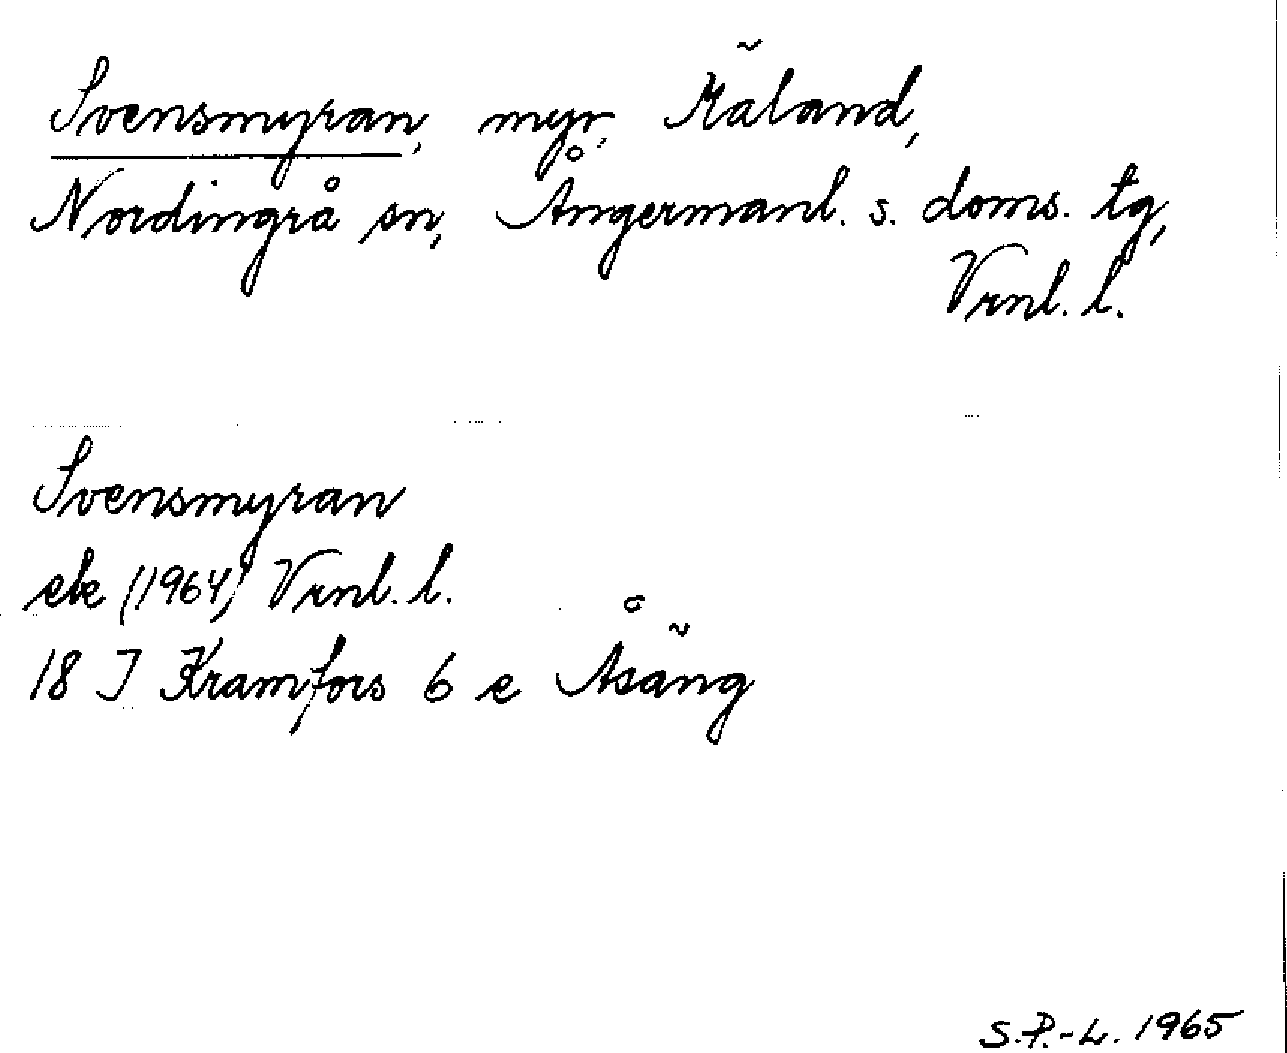 Svensmyran, myr, Mäland,
Nordingrå sn, Ångermanl. s. doms. tg,
Vrnl. l.
Svensmyran
ek (1964) Vrnl. l.
18 I Kramfors 6 e Åsäng
S.P.-L. 1965